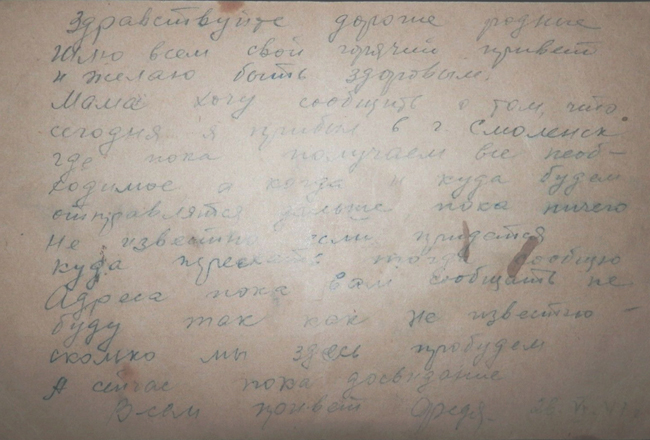 Здравствуйте дорогие родные
Шлю всем свой горячий привет
и желаю быть здоровым.
Мама хочу сообщить о том, что
сегодня я прибыл в г. Смоленск
где пока получаем все необ-
ходимое а когда и куда будем
отправлятся дальше, пока ничего
не известно если придется
куда приехать тогда сообщю
Адреса пока вам сообщать не
буду так как не известно
сколко мы здесь пробудем
А сейчас пока досвидание
Всем привет Федя.